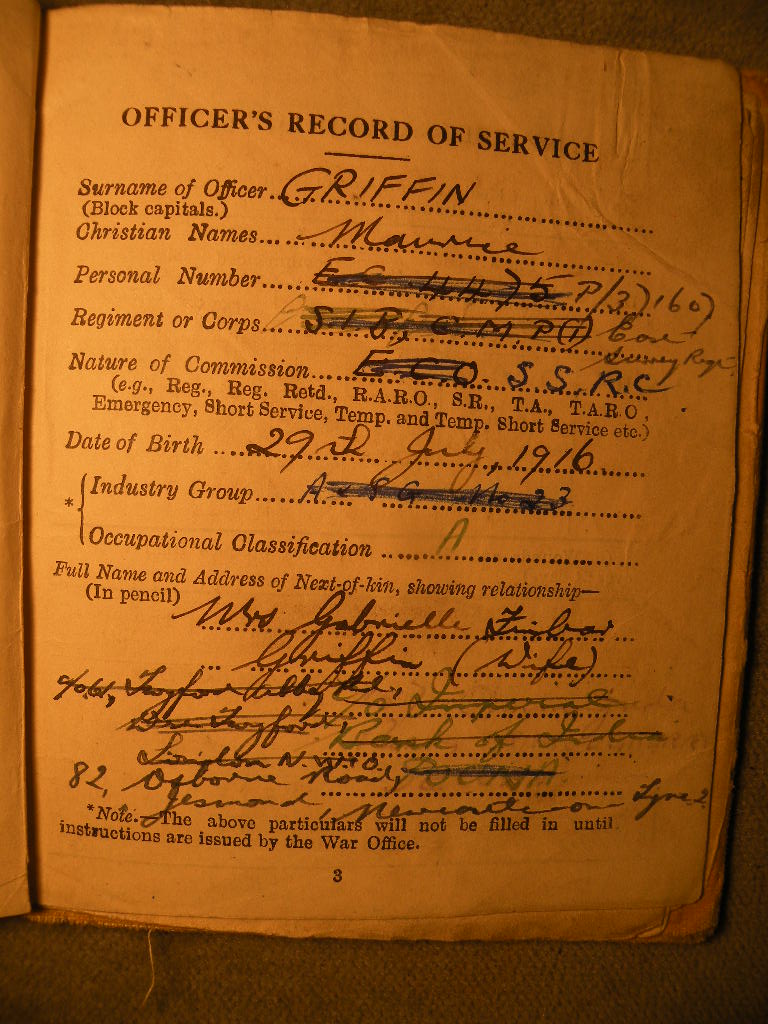 OFFICER'S RECORD OF SERVICE
Surname of Officer... GRIFFIN
(Block capitals.)
Christian Names... Maurice
Personal Number... EC 4475 P/3)160)
Regiment or Corps... S.I.B., C.M.P.(I) East
Surrey Regt.
Nature of Commission... ECO. S.S.R.C
(e.g., Reg., Reg. Retd., R.A.R.O., S.R., T.A., T.A.R.O.,
Emergency, Short Service, Temp. and Temp. Short Service etc.)
Date of Birth .... 29th July, 1916
* Industry Group.... No 23
Occupational Classification .... A
Full Name and Address of Next-of-kin, showing relationship—
(In pencil)
Mrs Gabrielle Finbar
Griffin (Wife)
Imperial
Bank of India
London N.W.10
82, Osborne Road,
Jesmond, Newcastle on Tyne 2
*Note.—The above particulars will not be filled in until
instructions are issued by the War Office.
3